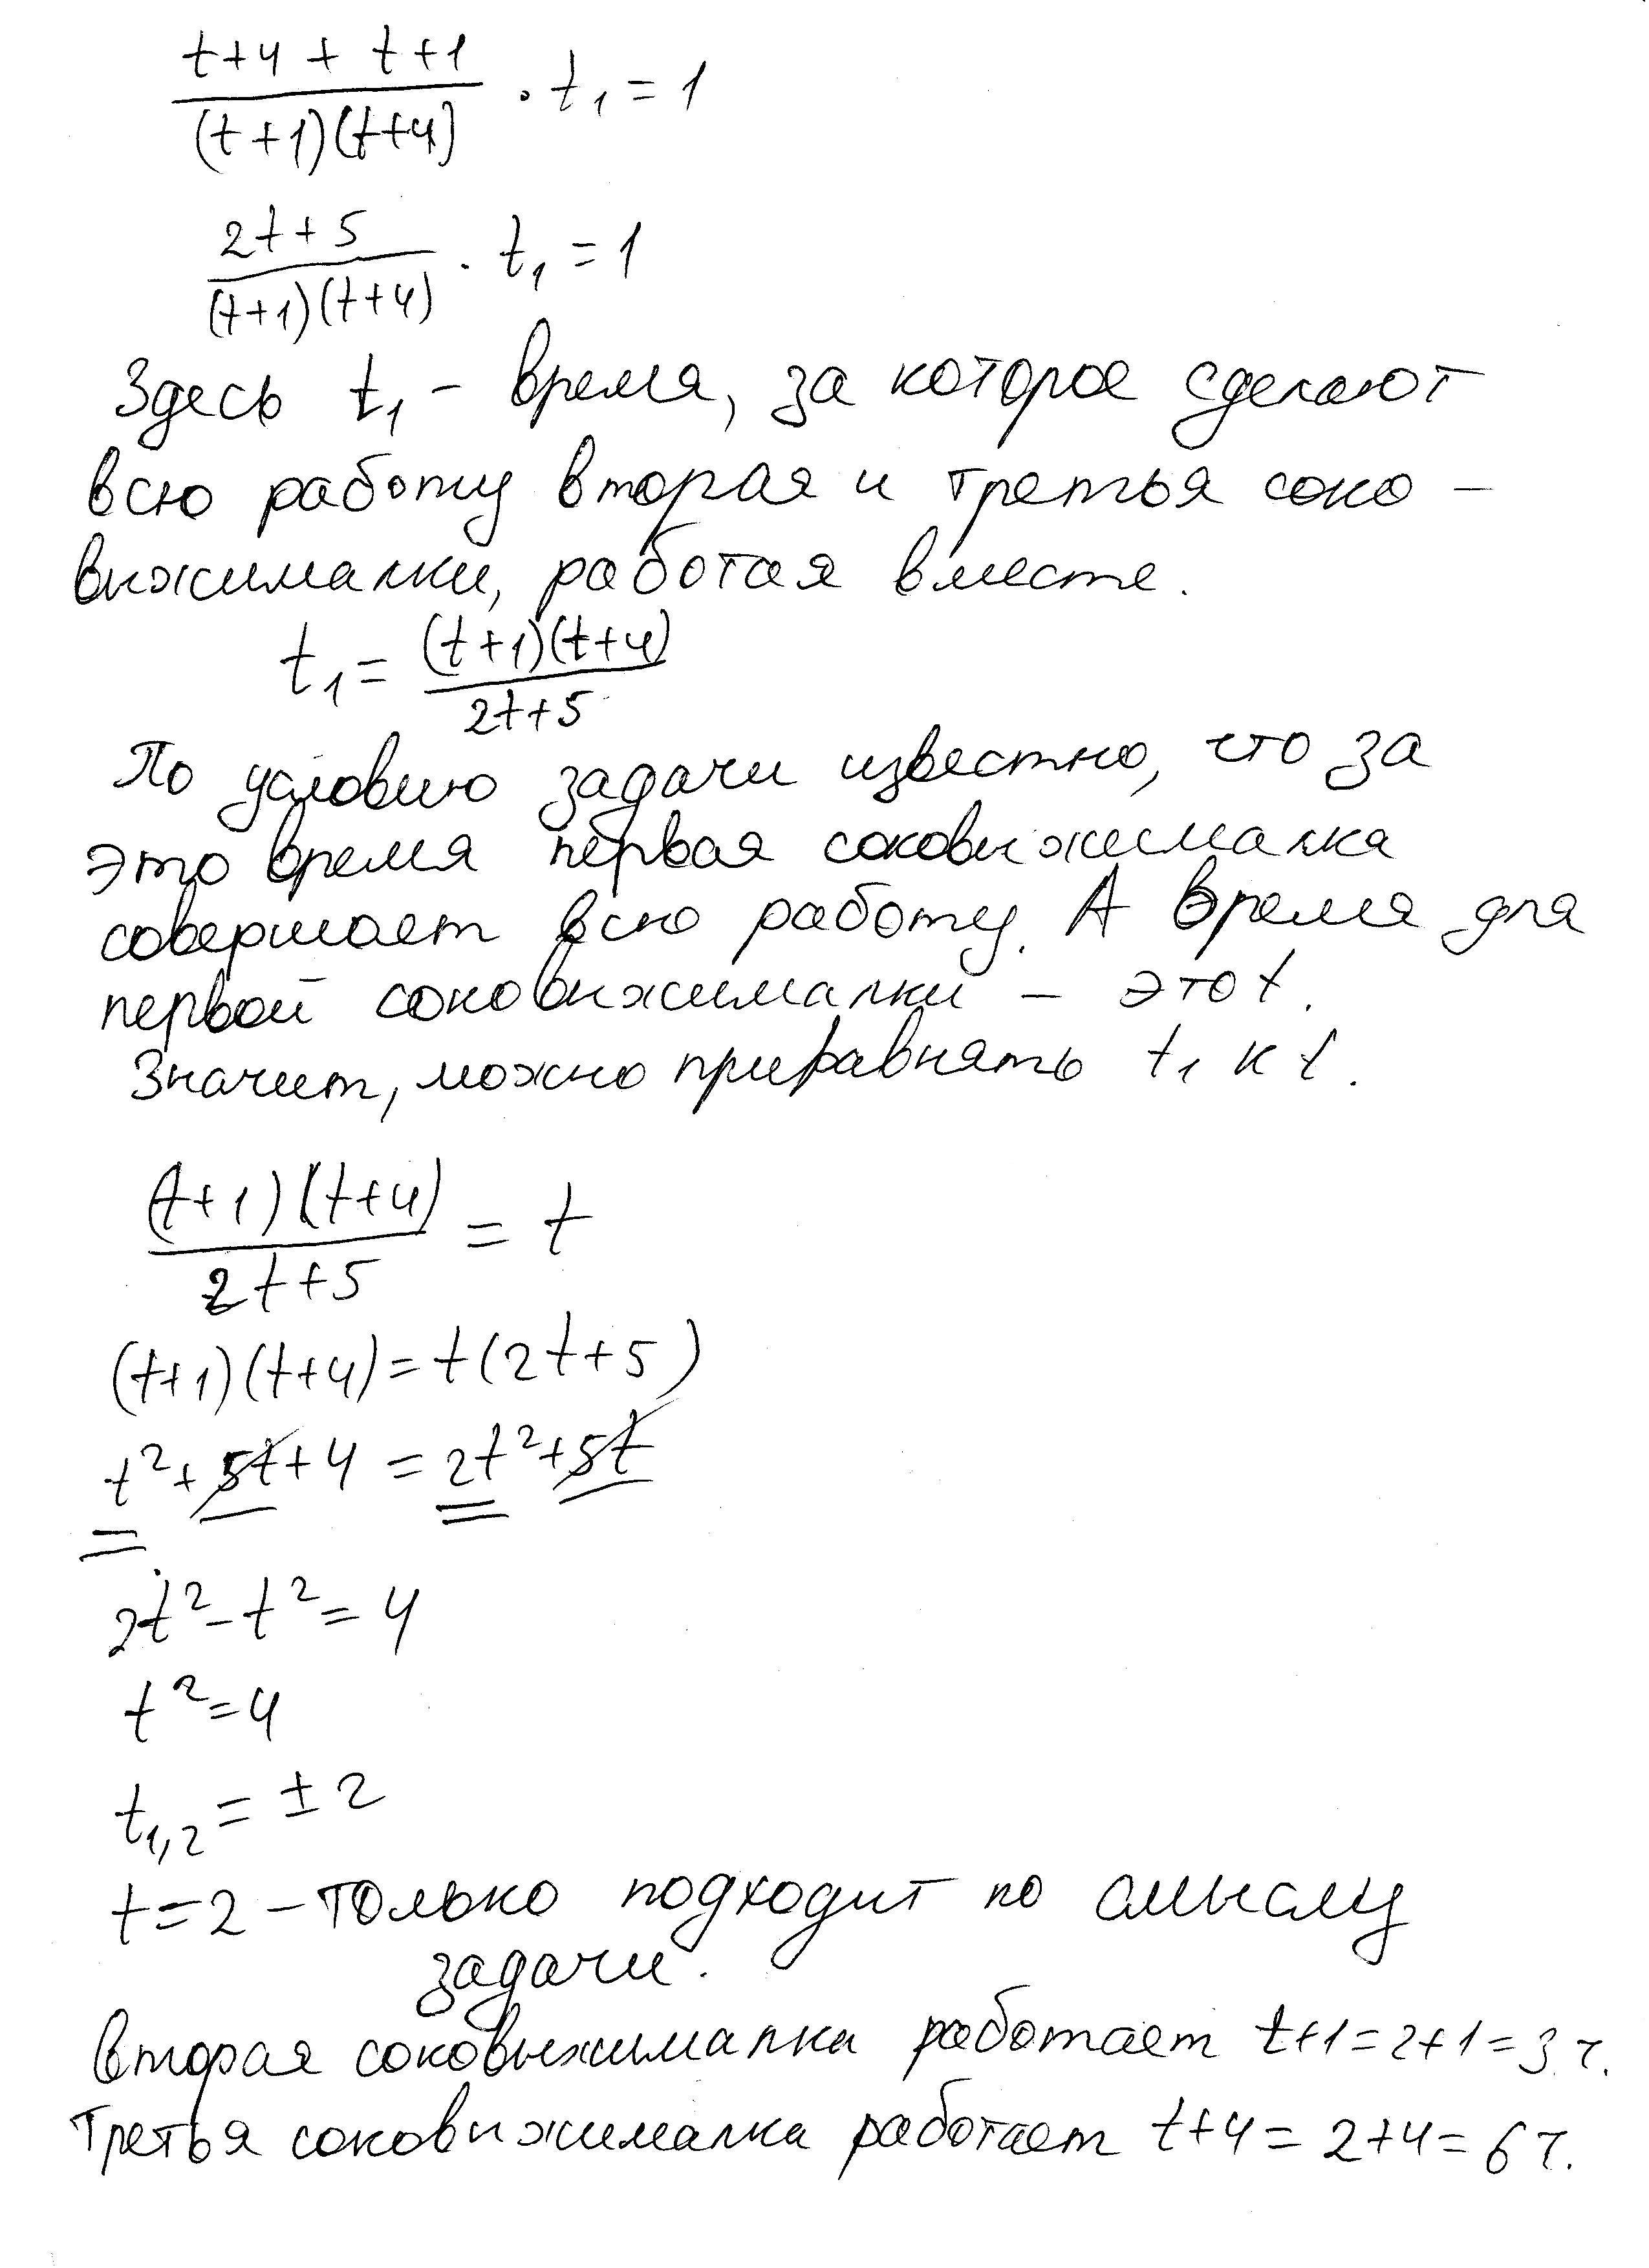 (t+4 + t+1)/((t+1)(t+4)) · t₁ = 1
(2t+5)/((t+1)(t+4)) · t₁ = 1
Здесь t₁ – время, за которое сделают
всю работу вторая и третья соко –
выжималки, работая вместе.
t₁ = ((t+1)(t+4))/(2t+5)
По условию задачи известно, что за
это время первая соковыжималка
совершает всю работу. А время для
первой соковыжималки – это t.
Значит, можно приравнять t₁ к t.
((t+1)(t+4))/(2t+5) = t
(t+1)(t+4) = t(2t+5)
t² + 5t + 4 = 2t² + 5t
2t² – t² = 4
t² = 4
t₁,₂ = ± 2
t = 2 – только подходит по смыслу
задачи.
Вторая соковыжималка работает t+1 = 2+1 = 3 ч.
Третья соковыжималка работает t+4 = 2+4 = 6 ч.